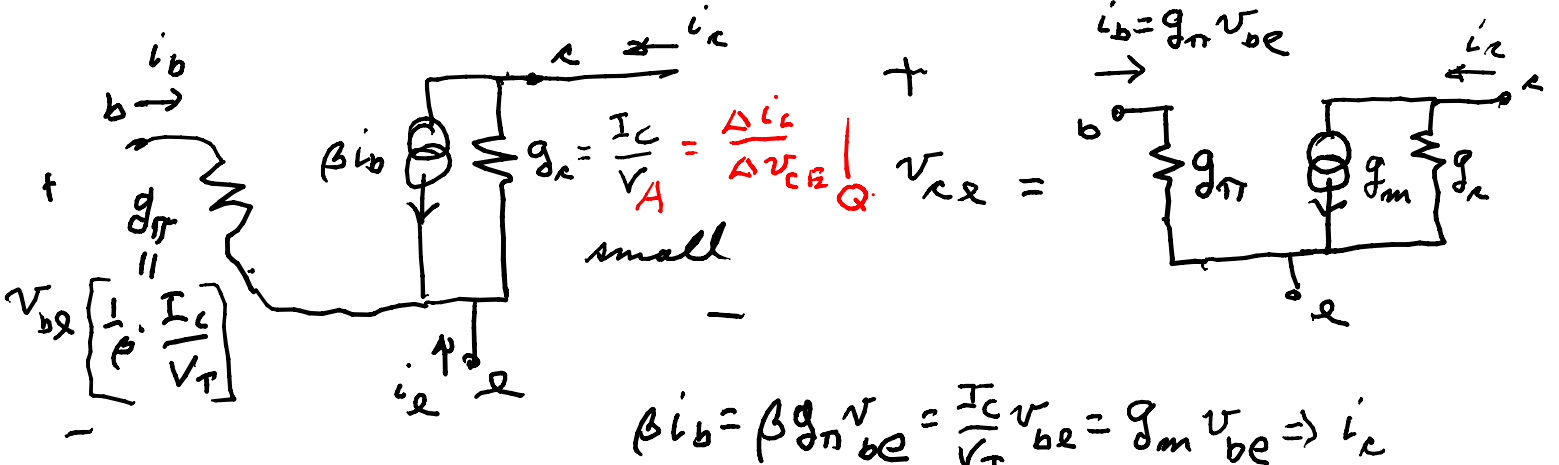 i_b
b →
+
g_π
=
v_be [1/β · I_c/V_T]
-
β i_b
c
← i_c
g_c = I_c/V_A = Δi_c/Δv_CE |_Q
small
i_e ↑ e
+
v_ce =
-
i_b = g_π v_be
→
b
g_π
g_m
g_c
← i_c
c
e
β i_b = β g_π v_be = I_c/V_T v_be = g_m v_be ⇒ i_c